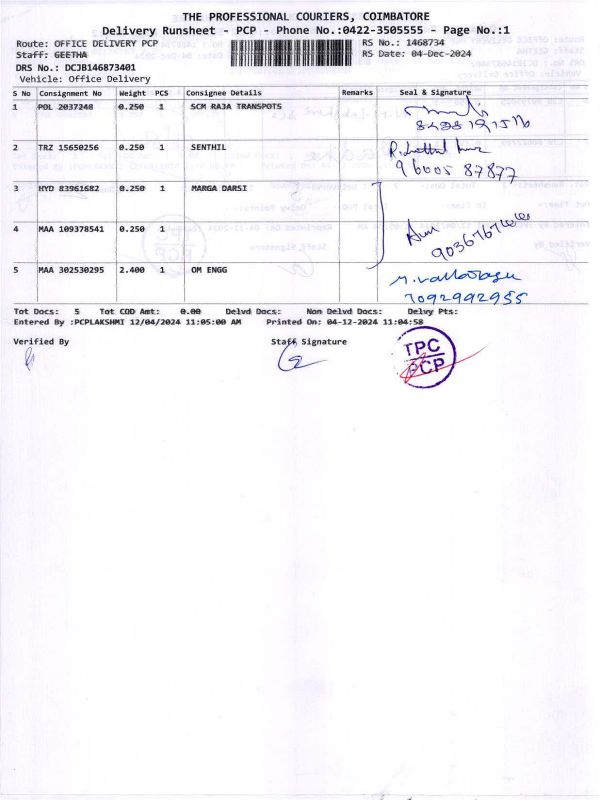 THE PROFESSIONAL COURIERS, COIMBATORE
Delivery Runsheet - PCP - Phone No.:0422-3505555 - Page No.:1
Route: OFFICE DELIVERY PCP RS No.: 1468734
Staff: GEETHA RS Date: 04-Dec-2024
DRS No.: DCJB146873401
Vehicle: Office Delivery
S No Consignment No Weight PCS Consignee Details Remarks Seal & Signature
1 POL 2037248 0.250 1 SCM RAJA TRANSPOTS
2 TRZ 15650256 0.250 1 SENTHIL
96005 87877
3 HYD 83961682 0.250 1 MARGA DARSI
4 MAA 109378541 0.250 1
5 MAA 302530295 2.400 1 OM ENGG
7092992955
Tot Docs: 5 Tot COD Amt: 0.00 Delvd Docs: Non Delvd Docs: Delvy Pts:
Entered By :PCPLAKSHMI 12/04/2024 11:05:00 AM Printed On: 04-12-2024 11:04:58
Verified By Staff Signature
TPC
PCP